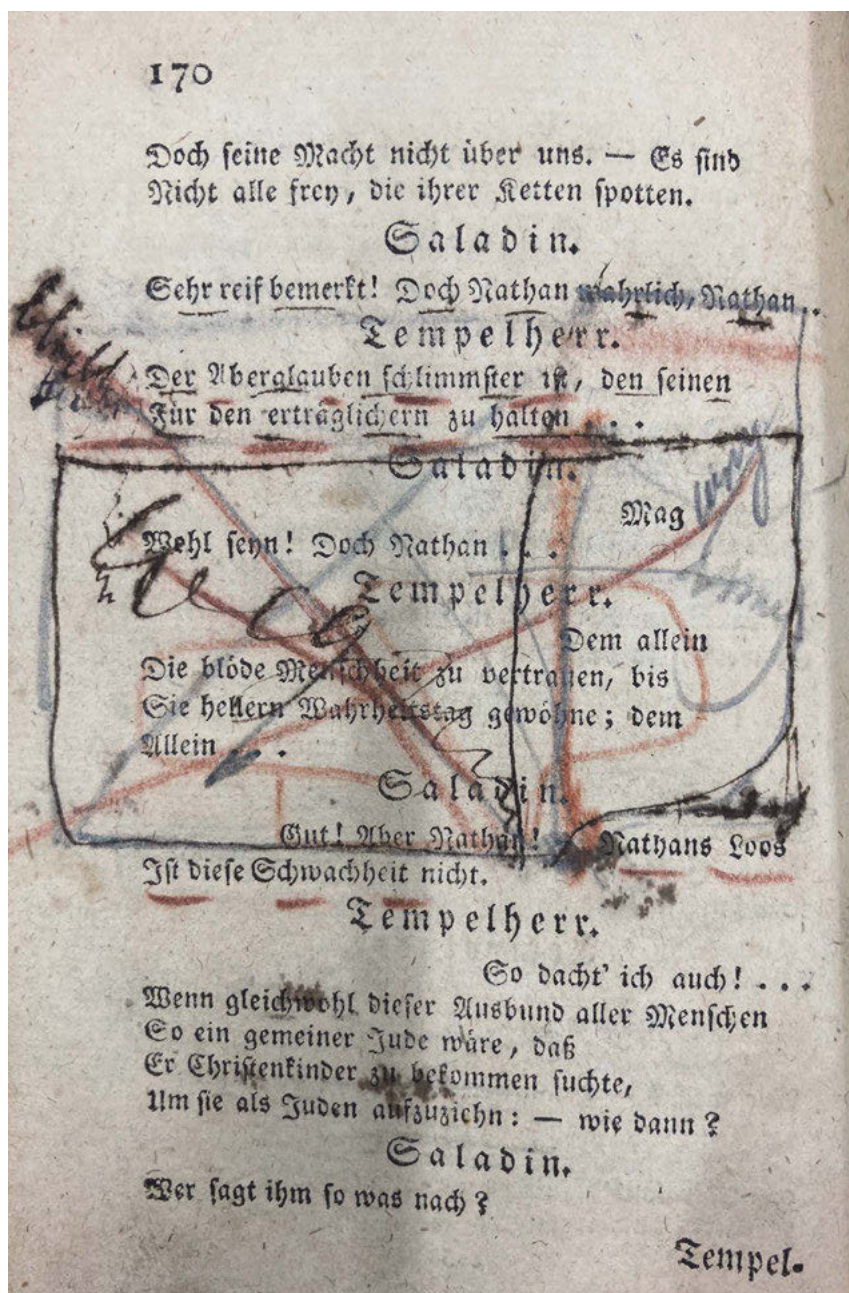 170
Doch seine Macht nicht über uns. — Es sind
Nicht alle frey, die ihrer Ketten spotten.
Saladin.
Sehr reif bemerkt! Doch Nathan wahrlich, Nathan..
Tempelherr.
Der Aberglauben schlimmster ist, den seinen
Für den erträglichern zu halten . . .
Saladin.
Mag
Wohl seyn! Doch Nathan . . .
Tempelherr.
Dem allein
Die blöde Menschheit zu vertrauen, bis
Sie hellern Wahrheitstag gewöhne; dem
Allein . . .
Saladin.
Gut! Aber Nathan! Nathans Loos
Ist diese Schwachheit nicht.
Tempelherr.
So dacht' ich auch! . . .
Wenn gleichwohl dieser Ausbund aller Menschen
So ein gemeiner Jude wäre, daß
Er Christenkinder zu bekommen suchte,
Um sie als Juden aufzuziehn: — wie dann?
Saladin.
Wer sagt ihm so was nach?
Tempel-